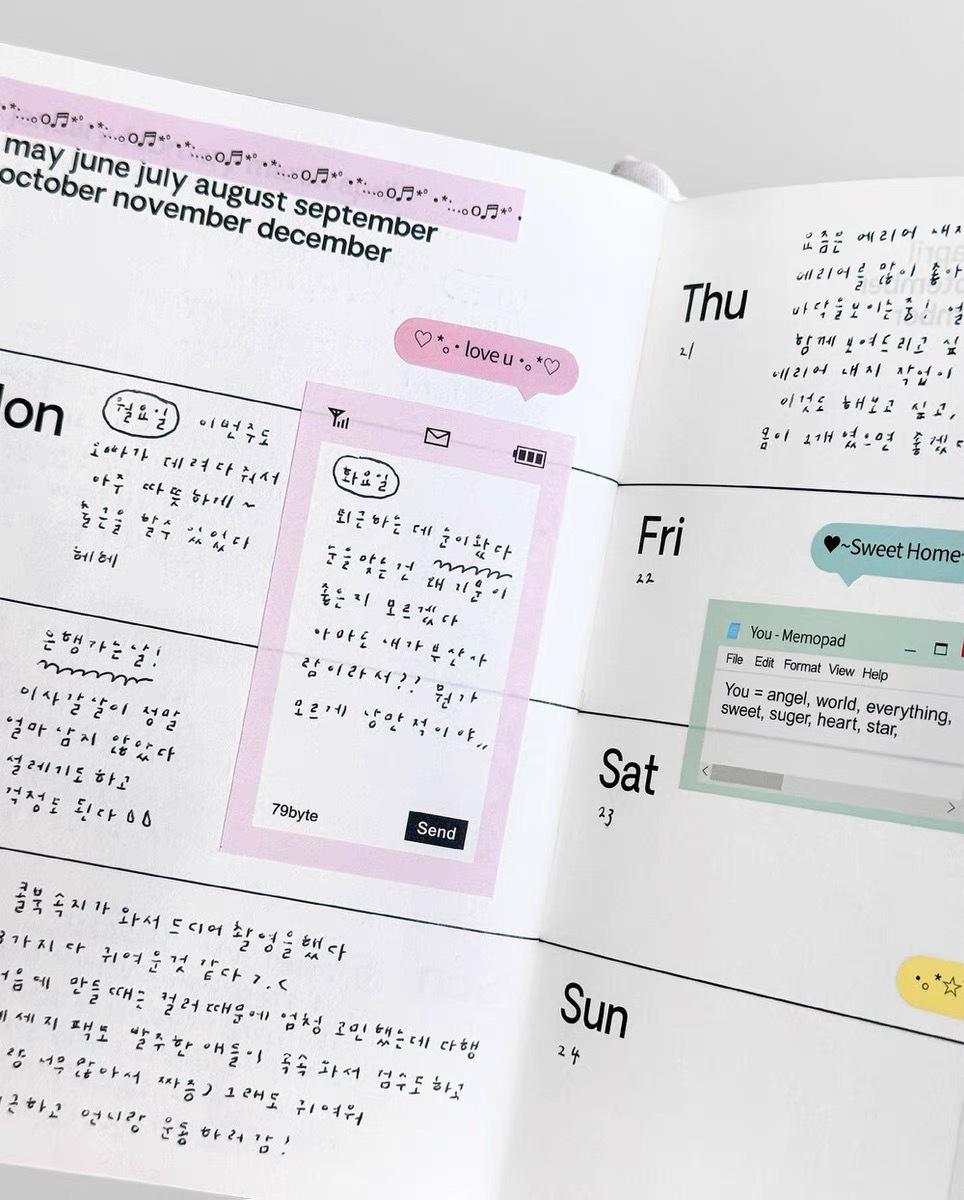 .*:...。o♬*°.*:...。o♬*°.*:...。o♬*°.*:...。o♬*°.*:...。o♬*°.*:...。o♬*°.
may june july august september
october november december
♡*。• love u •。*♡
월요일 이번주도
오빠가 데려다 줘서
아주 따뜻하게 ~
출근을 할수 있었다
헤헤
화요일
퇴근하는데 눈이왔다
눈을 맞는건 왜 기분이
좋은지 모르겠다
아마도 내가 부산사
람이라서?? 뭔가
모르게 낭만적이야,,
79byte
Send
은행가는날!
이사갈날이 정말
얼마 남지 않았다
설레기도 하고
걱정도 된다
콜북 속지가 와서 드디어 촬영을 했다
가지 다 귀여운것 같다 >.<
만들때는 컬러때문에 엄청 고민했는데 다행
발주한 애들이 속속 와서 검수도하고
너무 많아서 짜증) 그래도 귀여워
하고 언니랑 운동하러감!
Thu
21
요즘은 에리어
에리어를 많이
바닥을보이는중!
함께 보여드리고
에리어 내지 작업이
이것도 해보고 싶고,
몸이 2개였으면
Fri
22
♥~Sweet Home~
You - Memopad
File Edit Format View Help
You = angel, world, everything,
sweet, suger, heart, star,
Sat
23
•。*☆
Sun
24